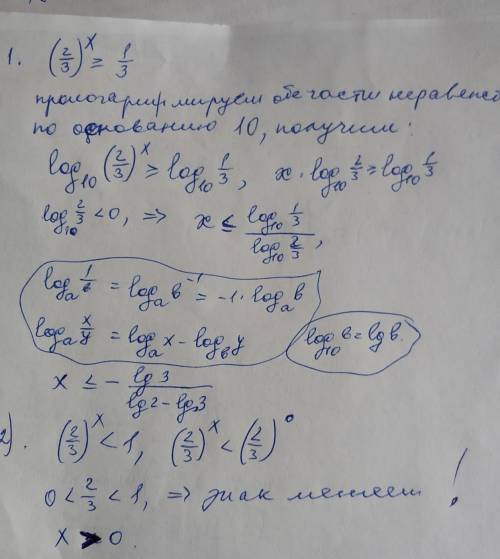 1. (2/3)^x ≥ 1/3
прологарифмируем обе части неравенс
по основанию 10, получим:
log₁₀ (2/3)^x ≥ log₁₀ 1/3, x · log₁₀ 2/3 ≥ log₁₀ 1/3
log₁₀ 2/3 < 0, => x ≤ log₁₀ 1/3 / log₁₀ 2/3,
logₐ 1/в = logₐ в⁻¹ = -1 · logₐ в
logₐ x/y = logₐ x - log_в y
log₁₀ в = lg в.
x ≤ - lg 3 / lg 2 - lg 3
2). (2/3)^x < 1, (2/3)^x < (2/3)^0
0 < 2/3 < 1, => знак меняем !
x > 0.